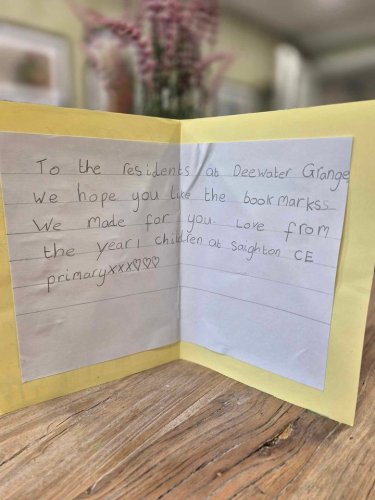 To the residents at Deewater Grange
We hope you like the book markss
We made for you. Love from
the year 1 children at Saighton CE
primaryxxx♡♡♡